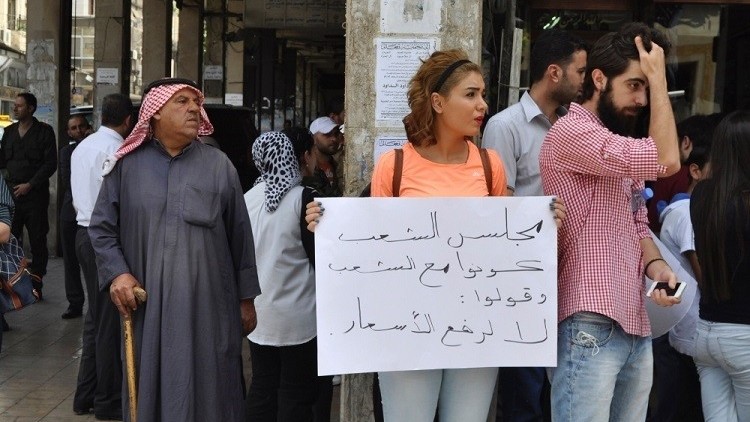 مجلس الشعب
كونوا مع الشعب
وقولوا :
لا لرفع الأسعار .